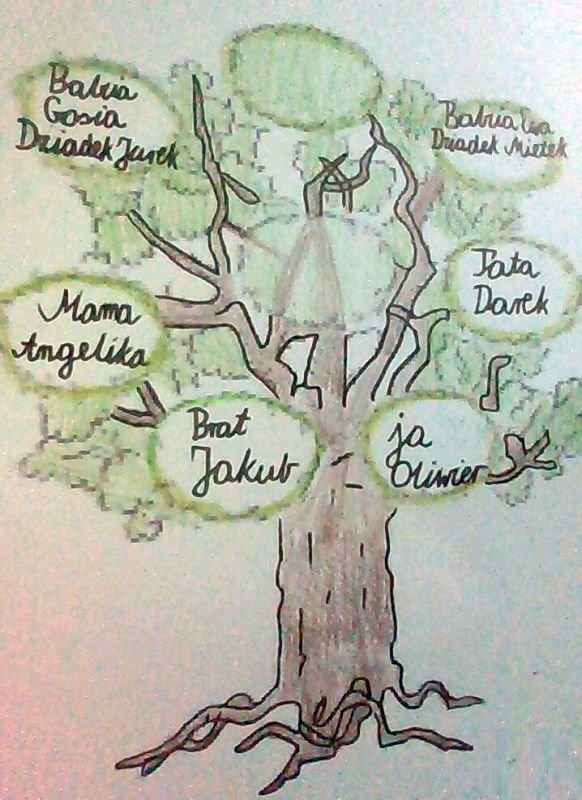 Babcia
Gosia
Dziadek Jurek
Babcia Ewa
Dziadek Mietek
Mama
Angelika
Tata
Darek
Brat
Jakub
ja
Oliwier